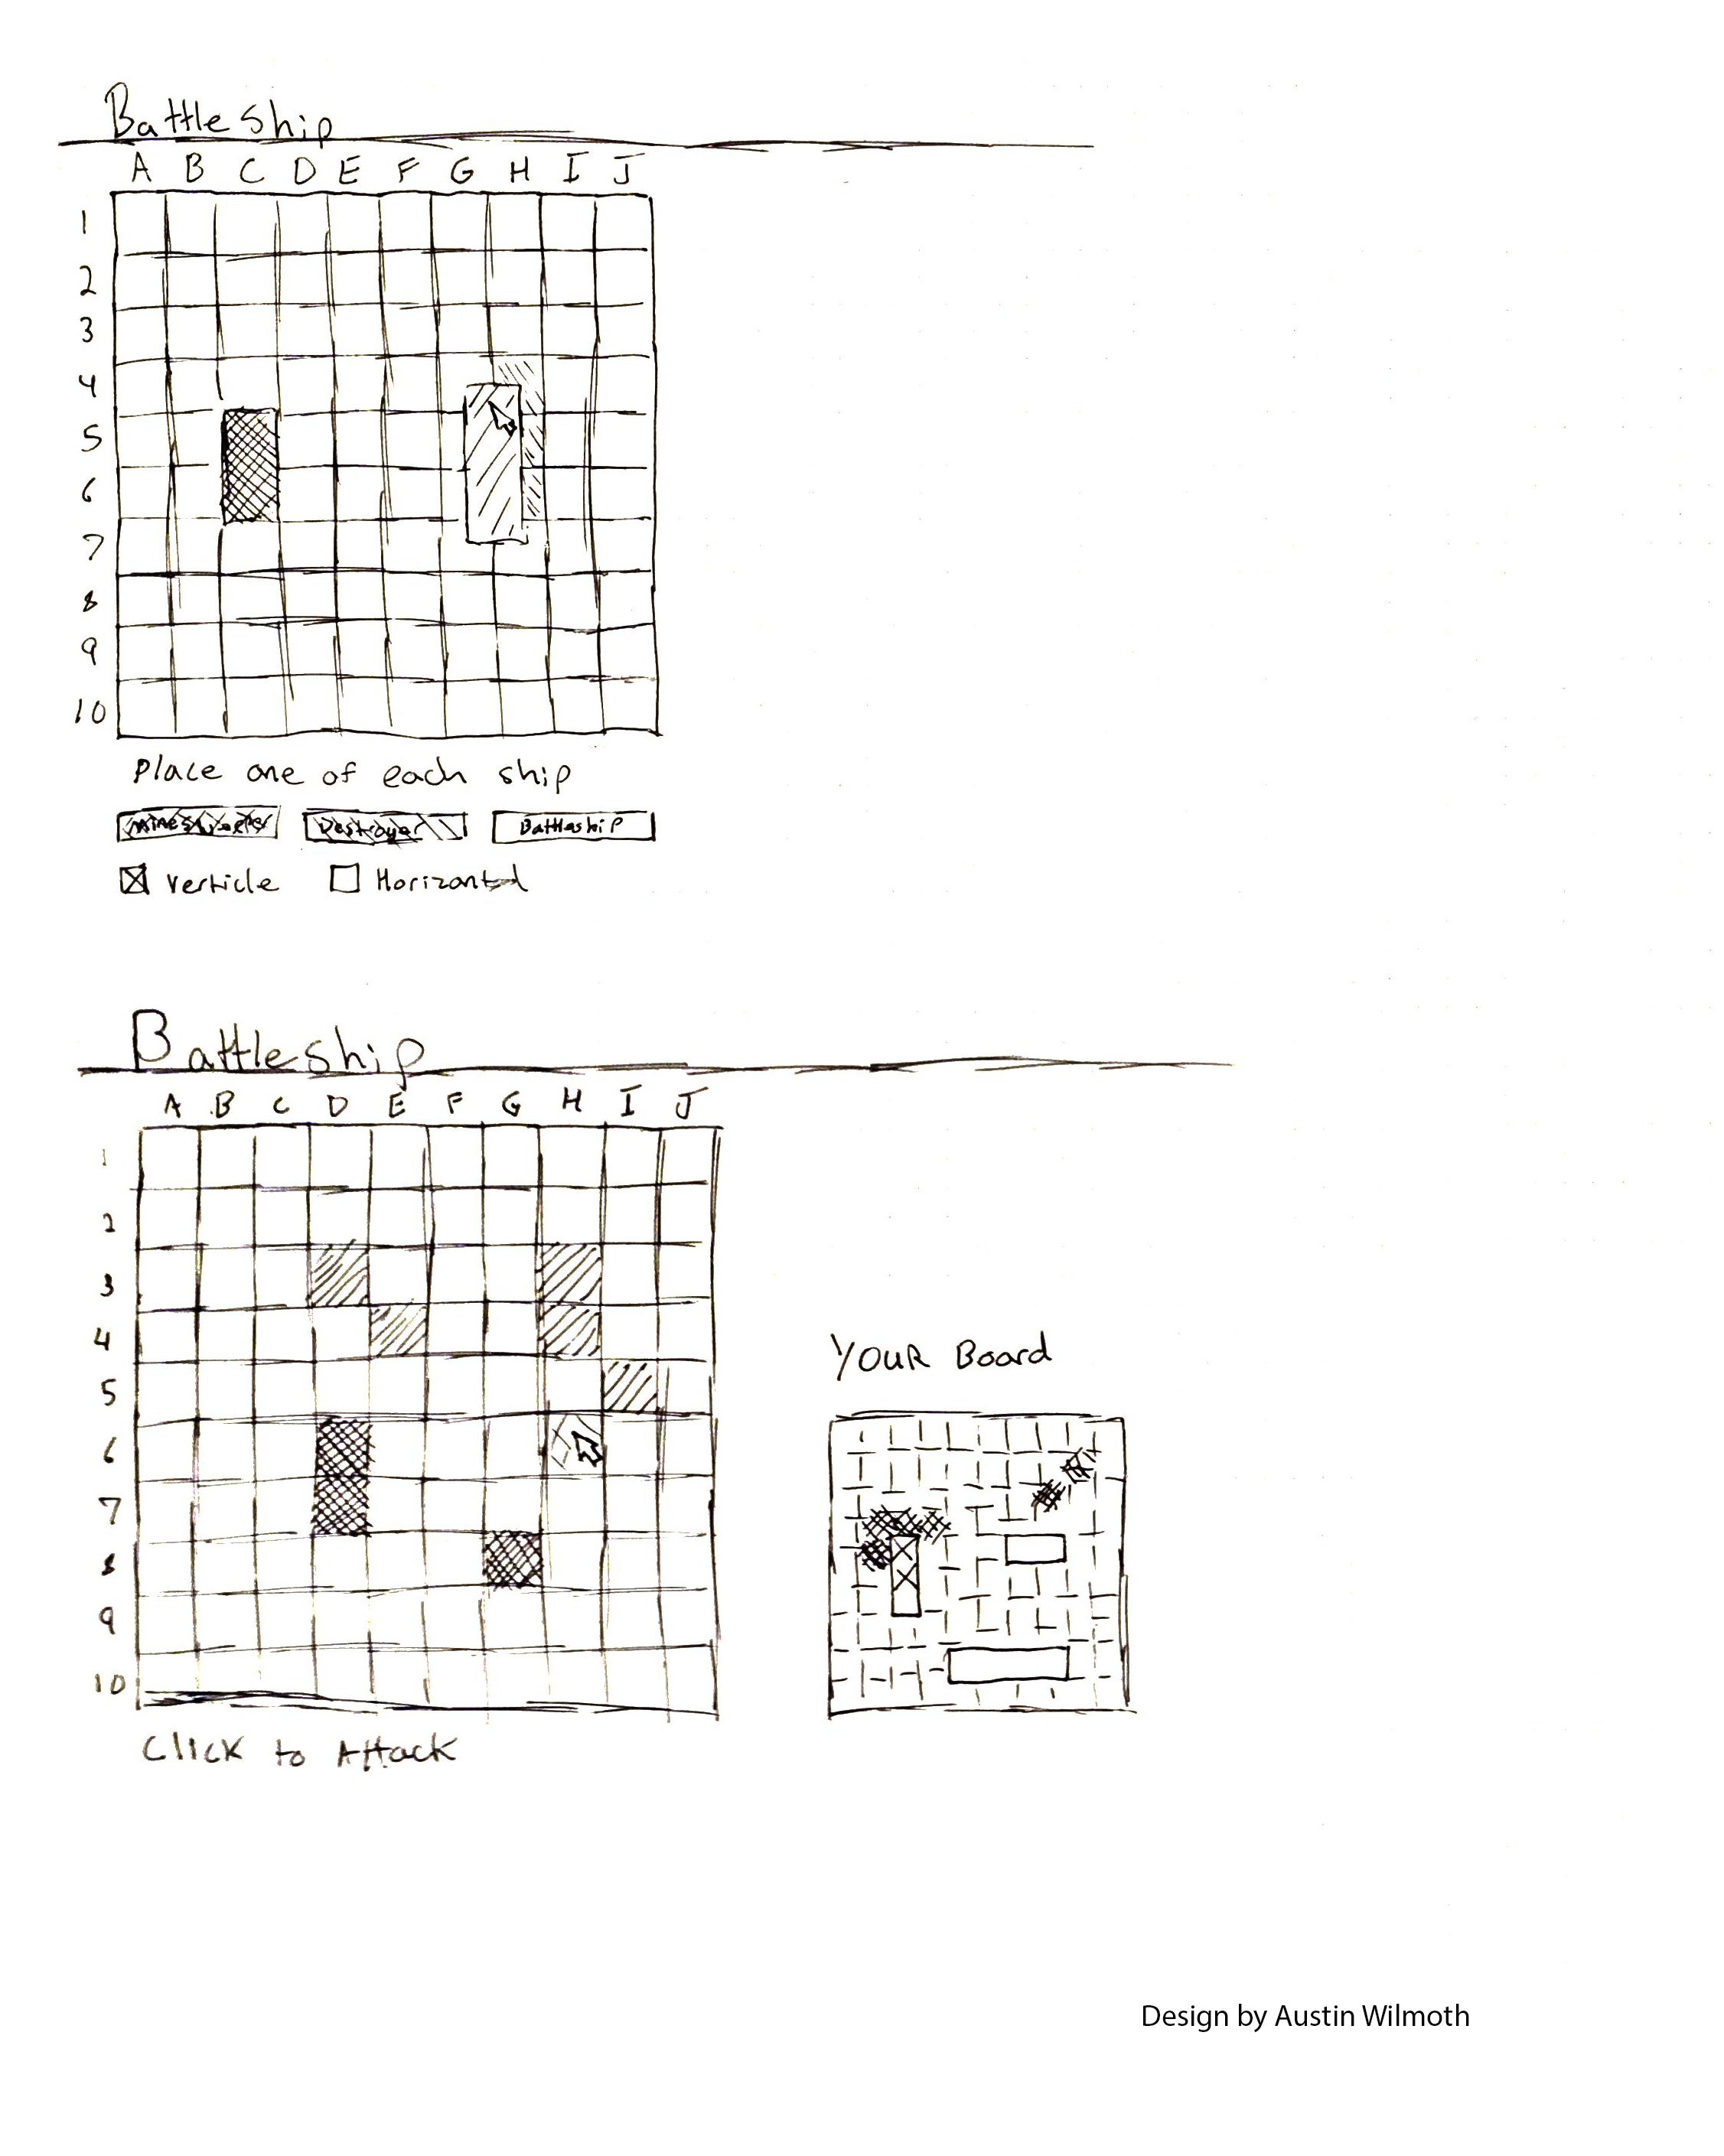 Battleship
A B C D E F G H I J
1
2
3
4
5
6
7
8
9
10
Place one of each ship
Minesweeper Destroyer Battleship
Verticle Horizontal
Battleship
A B C D E F G H I J
1
2
3
4
5
6
7
8
9
10
YOUR Board
Click to Attack
Design by Austin Wilmoth